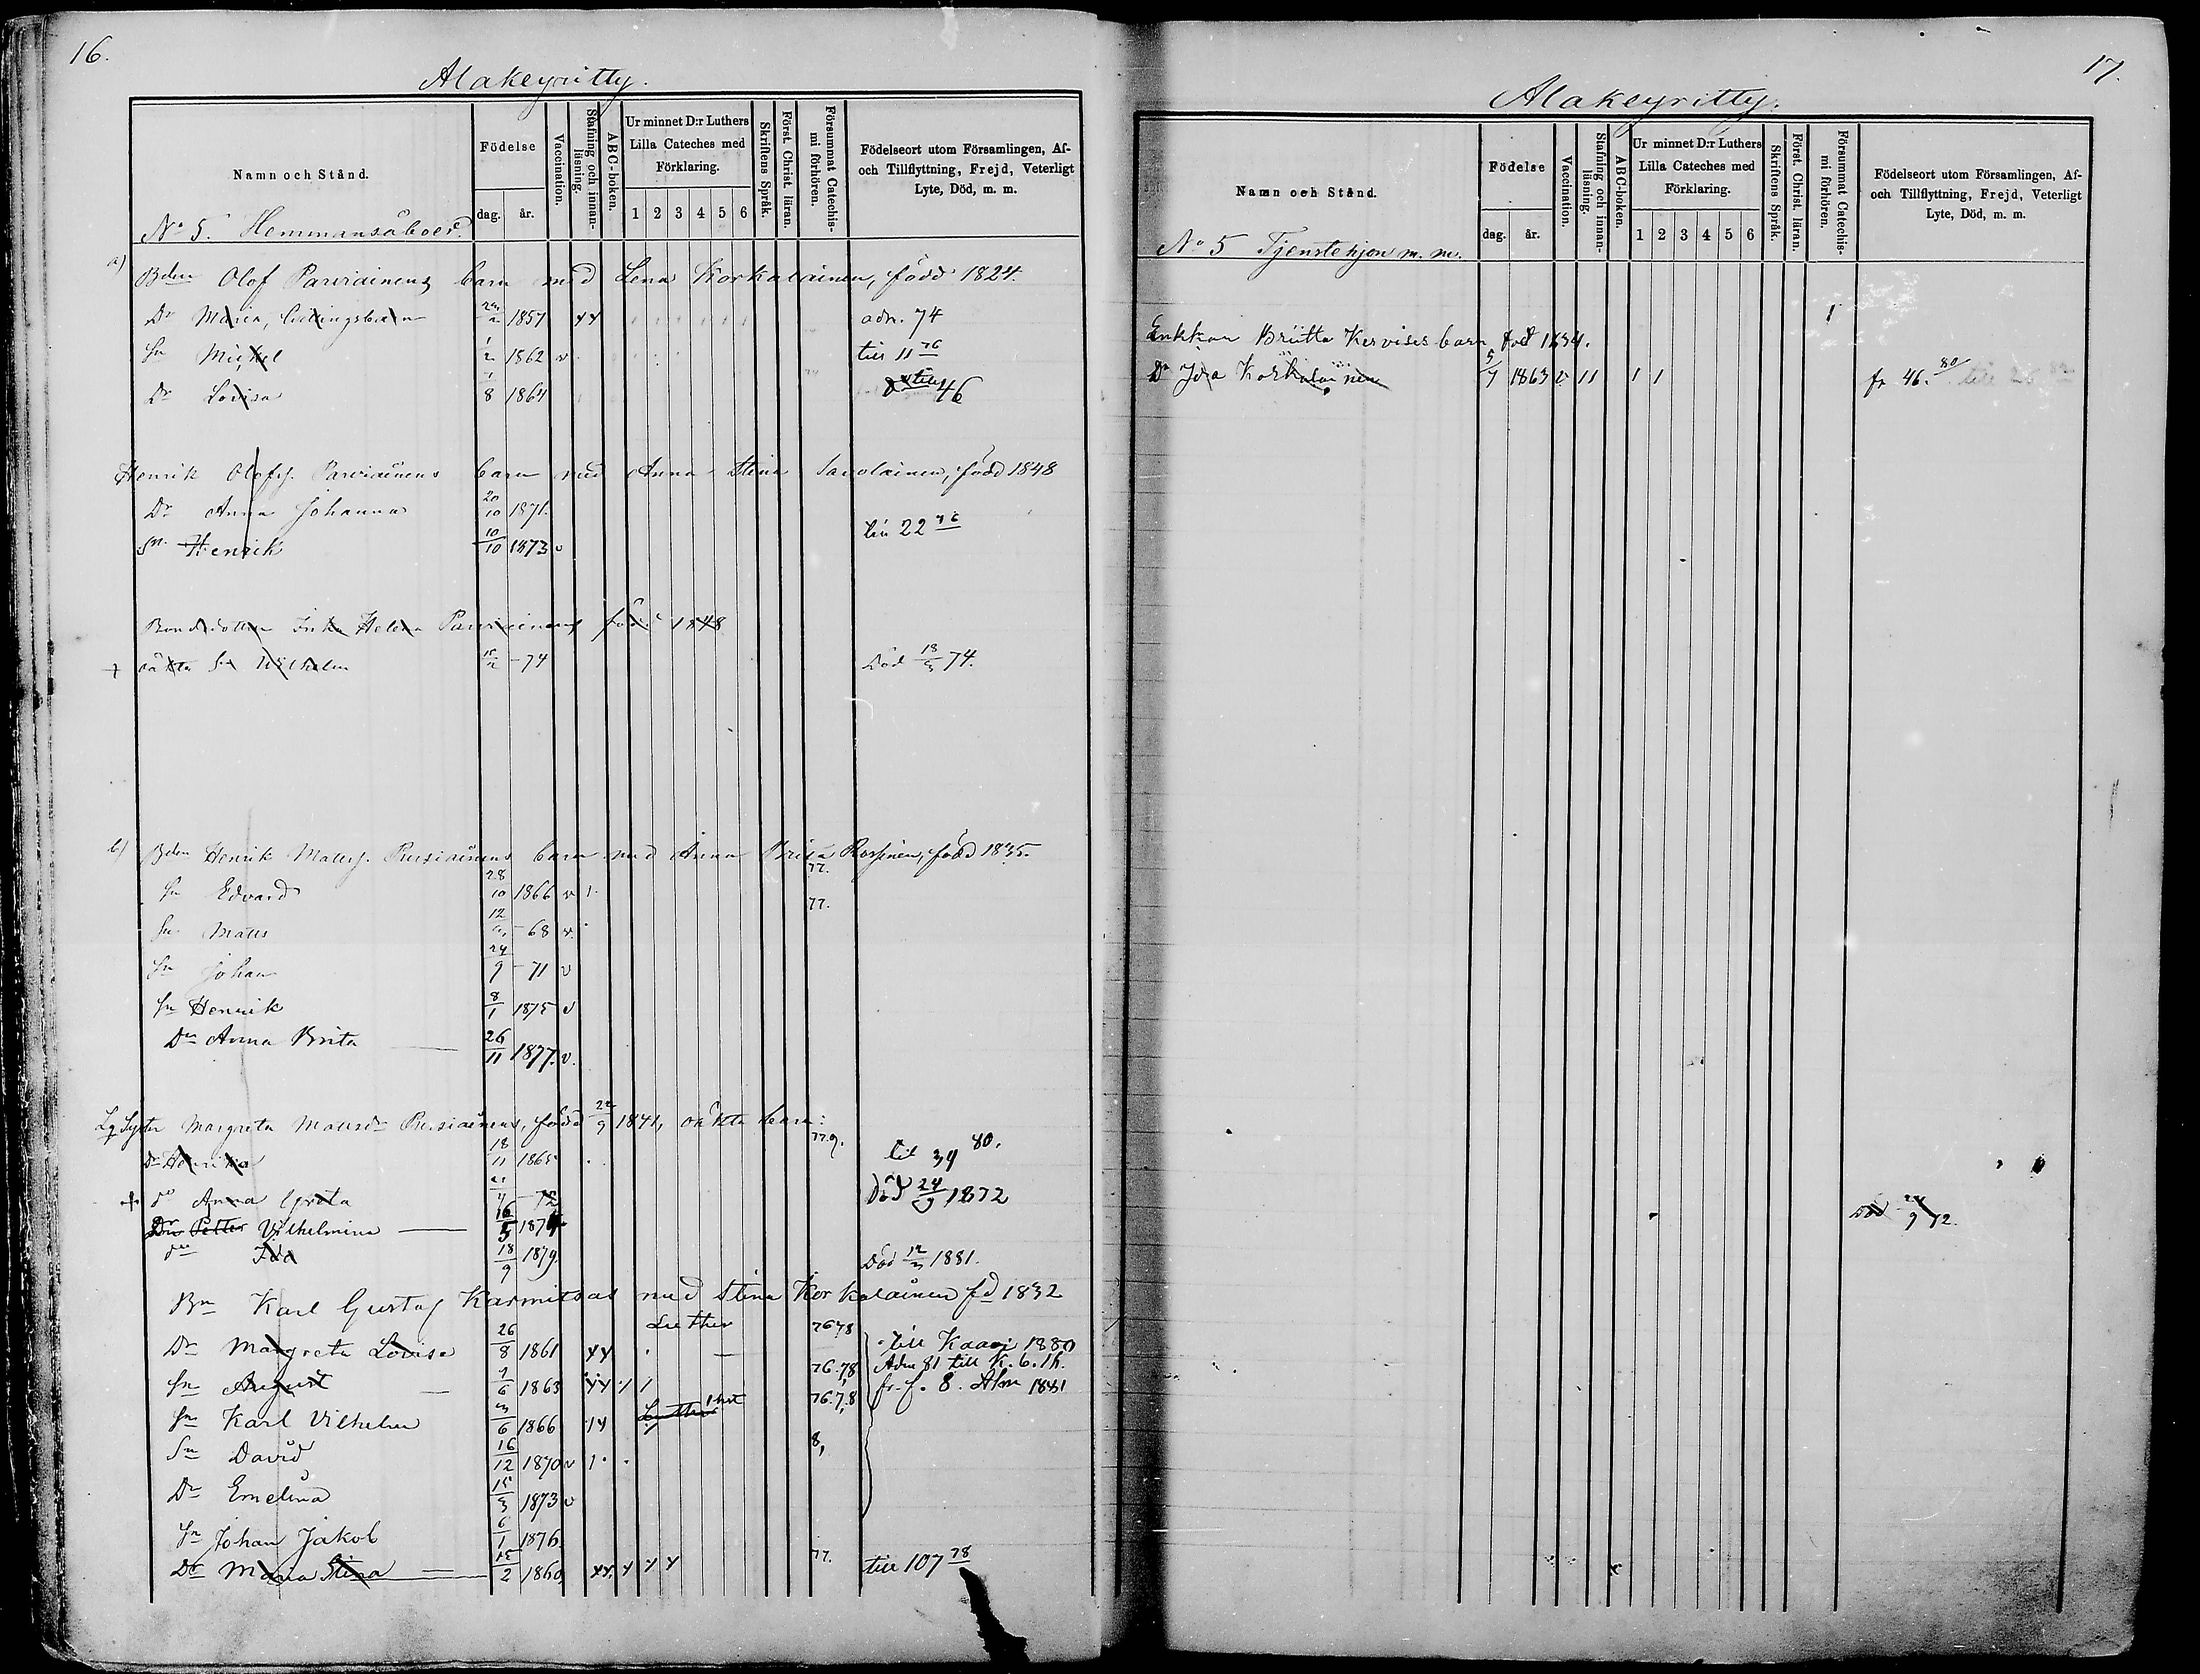 16.
Alakeyritty.
Namn och Stånd.
Födelse
dag.
år.
Vaccination.
Stafning och innanläsning.
ABC-boken.
Ur minnet D:r Luthers
Lilla Cateches med
Förklaring.
1 2 3 4 5 6
Skriftens Språk.
Först. Christ. läran.
Försummat Catechismi förhören.
Födelseort utom Församlingen, Af-
och Tillflyttning, Frejd, Veterligt
Lyte, Död, m. m.
No 5. Hemmansåboer.
a) Bden Olof Parviainens barn med Lena Korkalainen, född 1824.
Dr Maria, 1857 adm. 74
Sn Mickel 1862 v till 11 76
Dr Lovisa 8 1864 46
Henrik Olofs. Parviainens barn med Anna Stina Savolainen, född 1848
Dr Anna Johanna 20/10 1871. till 22 76
Sn Henrik 10/10 1873 v
Bondedottern Helena Parviainens född 1848
+ oäkta Sn Wilhelm -74 Död 18/3 74.
b) Bden Henrik Matts. Pursiainens barn med Anna Brita född 1835.
77.
Sn Edvard 28/10 1866 v 1. 77.
Sn Matts 12 -68 v.
Sn Johan 24/9 -71 v
Sn Henrik 8/1 1875 v
Dr Anna Brita 26/11 1877. v.
Margreta Mattsdr Pursiainens, född 22/9 1841, oäkta barn:
Dr Henrika 18/11 1865 77.9. till 39 80.
+ dr Anna Greta 72 Död 24/9 1872
Dr Petter Vilhelmina 16/5 187
dr Ida 18/9 1879. Död 12/3 1881.
Bn Karl Gustaf Karmitsas med Stina Korkalainen fd 1832
Luther
Dr Margreta Lovisa 26/8 1861 76 78 till Kaavi 1880
Sn August 6 1863 76.78, Adm 81 till K. 6. 1h.
Sn Karl Vilhelm 3/6 1866 76.7,8 fr. f. 8. Alm 1881
Sn David 16/12 1870 v 1. 8,
Dr Emelina 15/3 1873 v
Sn Johan Jakob 6/1 1876.
Dr Maria Stina 15/2 1860 77. till 107 78
17.
Alakeyritty.
Namn och Stånd.
Födelse
dag.
år.
Vaccination.
Stafning och innanläsning.
ABC-boken.
Ur minnet D:r Luthers
Lilla Cateches med
Förklaring.
1 2 3 4 5 6
Skriftens Språk.
Först. Christ. läran.
Försummat Catechismi förhören.
Födelseort utom Församlingen, Af-
och Tillflyttning, Frejd, Veterligt
Lyte, Död, m. m.
No 5 Tjenstehjon m. m.
1
Enkkan Briitta Kervises barn föd 1834.
Dr Ida Korkalainen 5/7 1863 v 11 1 1 fr 46. 80
Död 24/9 72.